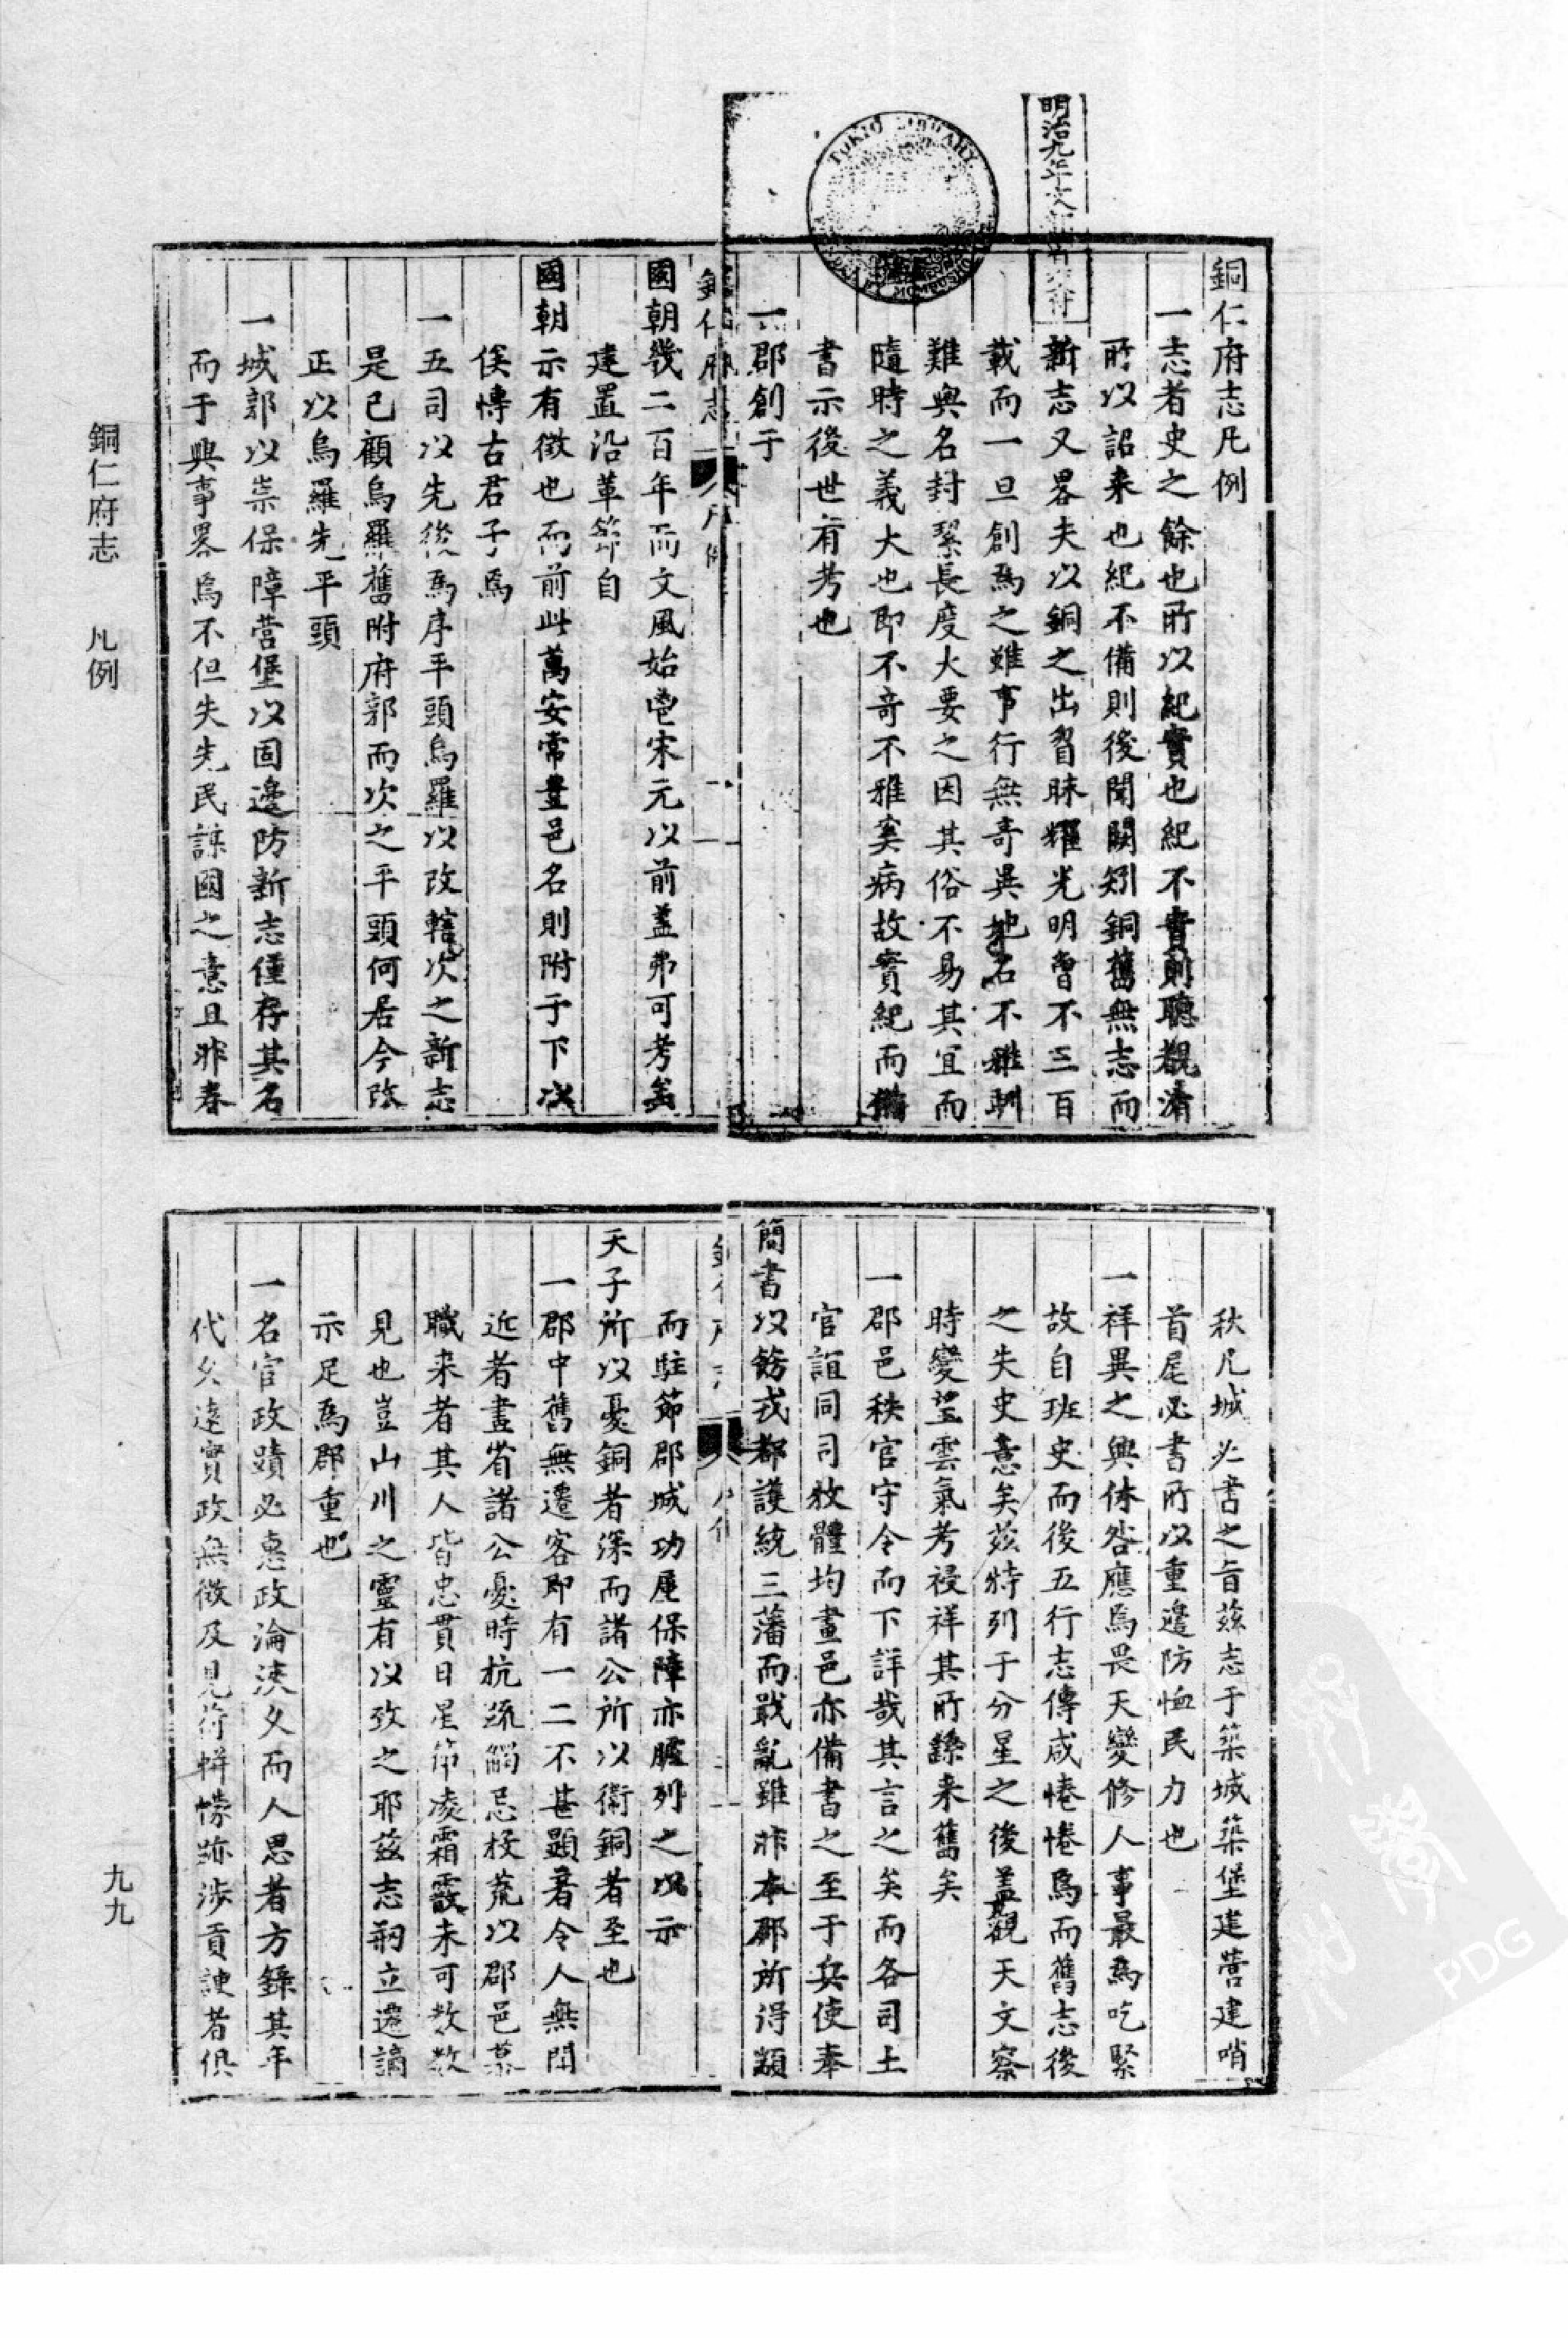 明治九年文部省交付
TOKIO LIBRARY
銅仁府志凡例
一志者史之餘也所以紀實也紀不實則聽觀淆
所以詔来也紀不備則後聞闕矧銅舊無志而
新志又畧夫以銅之出習昧耀光明曾不三百
載而一旦創為之雖事行無奇異地名不雅馴
難與名封繁長度大要之因其俗不易其宜而
隨時之義大也即不奇不雅奚病故實紀而備
書示後世有考也
一郡創于
銅仁府志
凡例
國朝幾二百年而文風始鬯宋元以前盖弗可考矣
建置沿革節自
國朝示有徵也而前此萬安常豊邑名則附于下以
俟博古君子焉
一五司以先後為序平頭烏羅以改轄次之新志
是已顧烏羅舊附府郭而次之平頭何居今
正以烏羅先平頭
一城郭以崇保障營堡以固邊防新志僅存其名
而于興事畧焉不但失先民謀國之意且非春
秋凡城必書之旨兹志于築城築堡建營建哨
首尾必書所以重邊防恤民力也
一祥異之興休咎應焉畏天變修人事最為吃緊
故自班史而後五行志傳咸惓惓焉而舊志後
之失史意矣兹特列于分星之後盖觀天文察
時變望雲氣考祲祥其所繇来舊矣
一郡邑秩官守令而下詳哉其言之矣而各司土
官誼同司牧體均畫邑亦備書之至于兵使奉
簡書以飭戎都護統三藩而戢亂雖非本郡所得顓
銅仁府志
凡例
而駐節郡城功屋保障亦臚列之以示
天子所以憂銅者深而諸公所以衛銅者至也
一郡中舊無遷客即有一二不甚顯著令人無聞
近者臺省諸公憂時抗疏觸忌投荒以郡邑幕
職来者其人皆忠貫日星節凌霜霰未可數數
見也豈山川之靈有以致之耶兹志剏立遷謫
示足為郡重也
一名宦政蹟必惠政淪浹久而人思者方錄其年
代久遠實政無徵及見荷帡幪跡涉貢諛者俱
銅仁府志 凡例
九九
PDG